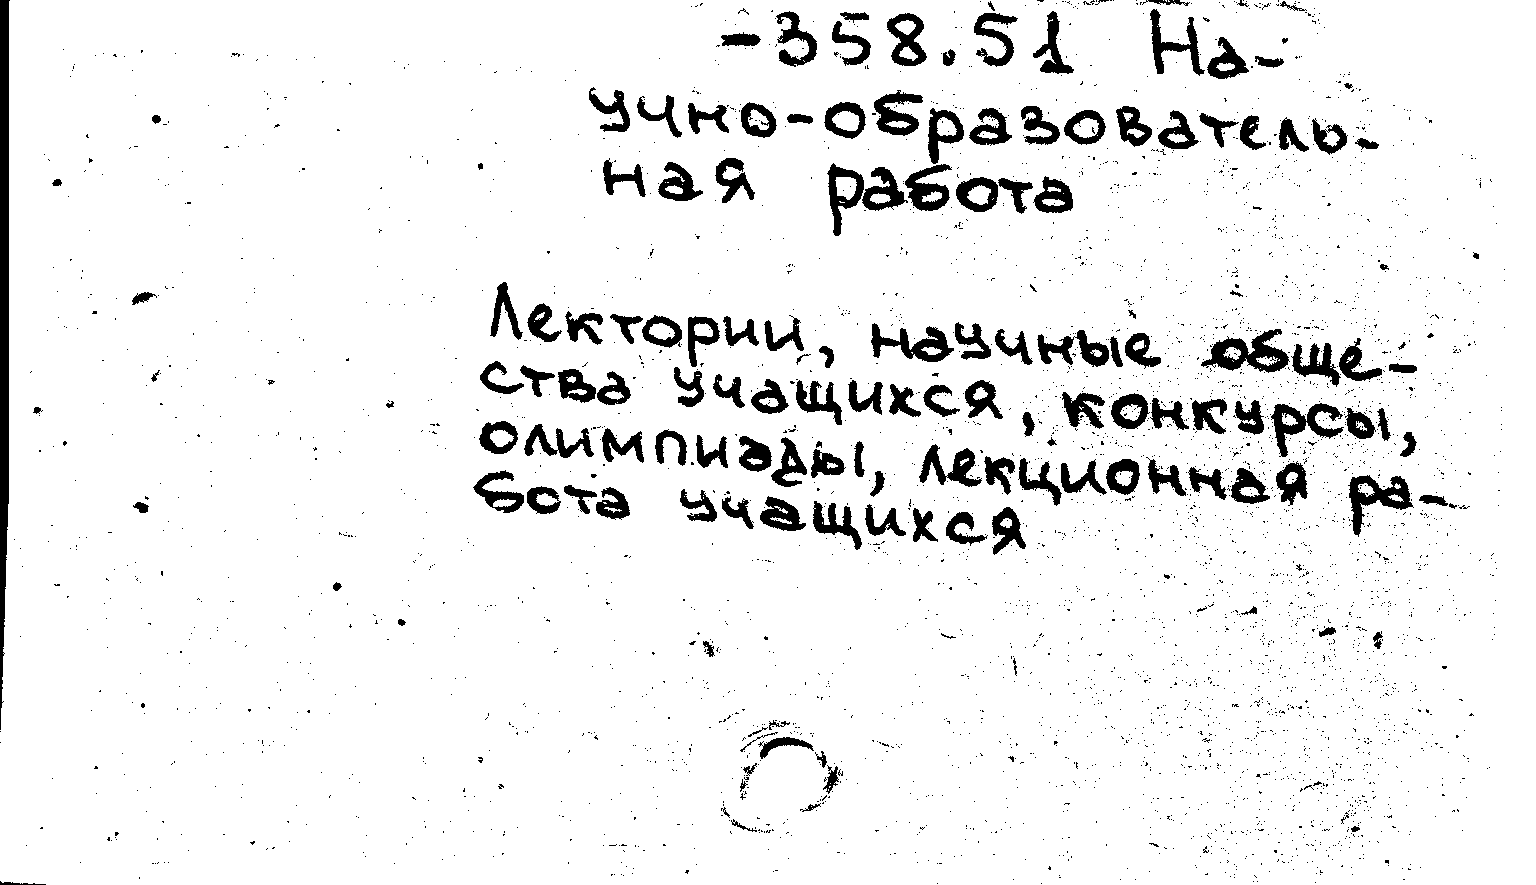 -358.51 На-
учно-образователь-
ная работа
Лектории, научные обще-
ства учащихся, конкурсы,
олимпиады, лекционная ра-
бота учащихся